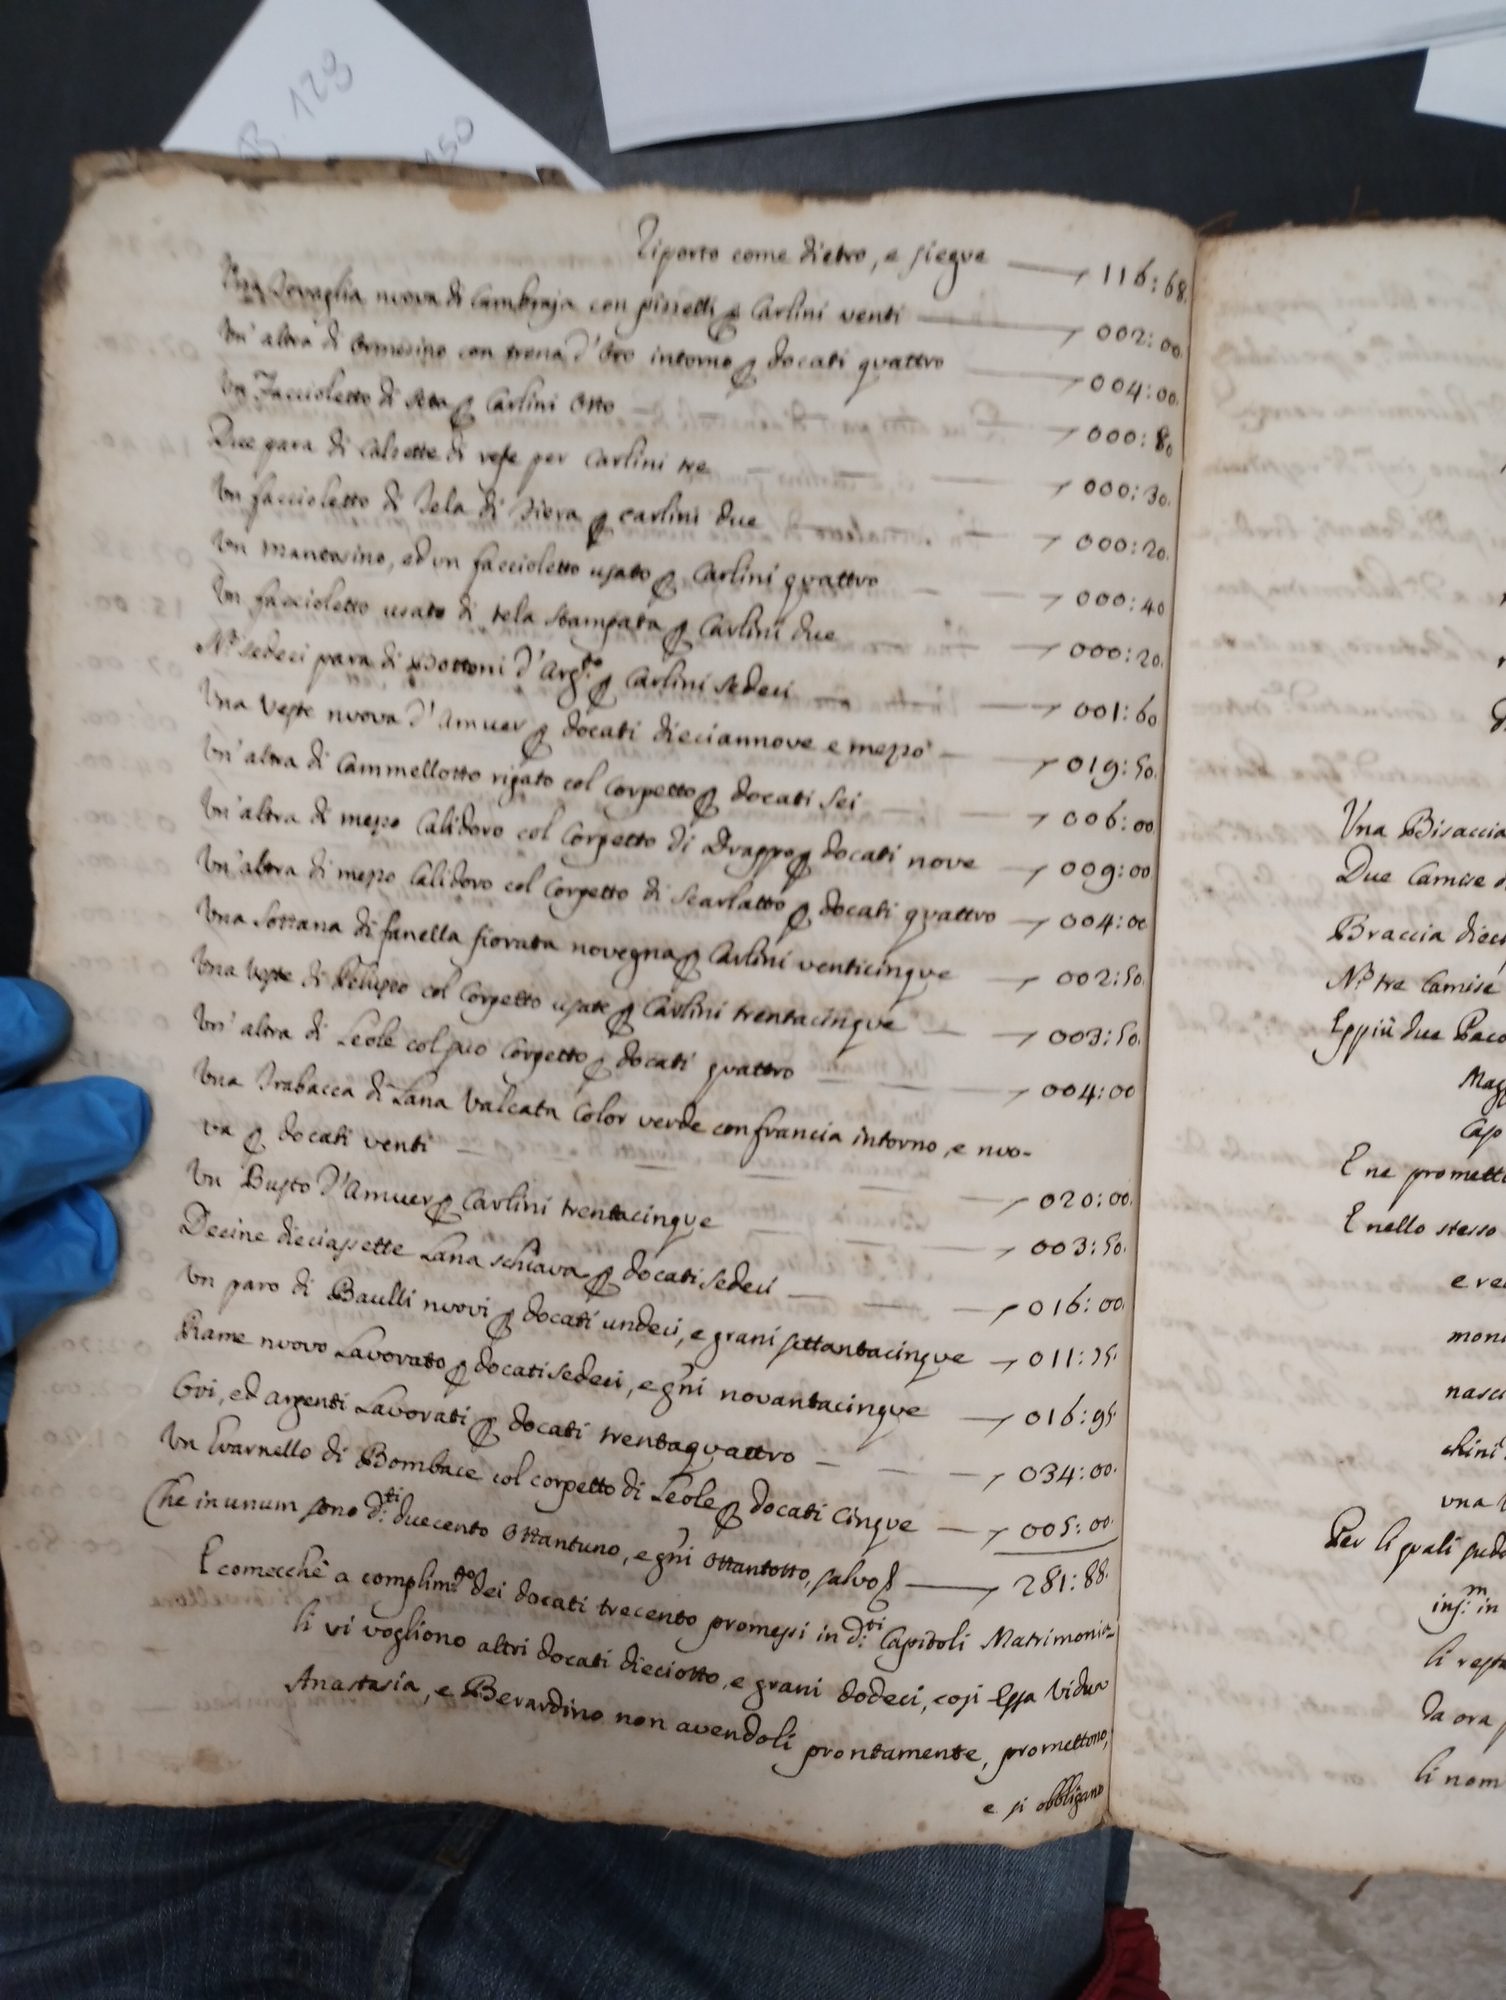 B. 128
150
Riporto come dietro, e siegue — 116:68.
Una Tovaglia nuova di Cambraja con pizzetti p Carlini venti — 002:00.
Un' altra di Ormesino con trena d'Oro intorno p docati quattro — 004:00.
Un Faccioletto di Seta p Carlini Otto — 000:80
Due para di Calzette di refe per Carlini tre — 000:30.
Un faccioletto di Tela di Fiera p carlini due — 000:20.
Un Mantesino, ed un faccioletto usato p Carlini quattro — 000:40
Un faccioletto usato di tela stampata p Carlini due — 000:20.
N.º sedeci para di Bottoni d'Arg.to p Carlini sedeci — 001:60
Una Veste nuova d'Amuer p docati dieciannove e mezzo — 019:50.
Un' altra di Cammellotto rigato col Corpetto p docati sei — 006:00
Un' altra di mezzo Calidoro col Corpetto di Drappo p docati nove — 009:00
Un' altra di mezzo Calidoro col Corpetto di Scarlatto p docati quattro — 004:00
Una Sottana di fanella fiorata novegna p Carlini venticinque — 002:50.
Una Veste di col Corpetto usate p Carlini trentacinque — 003:50.
Un' altra di Leole col suo Corpetto p docati quattro — 004:00
Una Trabacca di Lana Valcata Color verde con francia intorno, e nuo-
va p docati venti — 020:00.
Un Busto d'Amuer p Carlini trentacinque — 003:50.
Decine dieciassette Lana schiava p docati sedeci — 016:00
Un paro di Baulli nuovi p docati undeci, e grani settantacinque — 011:75.
Rame nuovo Lavorato p docati sedeci, e gni novantacinque — 016:95
Ori, ed argenti Lavorati p docati trentaquattro — 034:00.
Un Guarnello di Bombace col corpetto di Leole p docati Cinque — 005:00
Che in unum sono d.ti duecento Ottantuno, e gni Ottantotto, salvo — 281:88.
E comecchè a complim.to dei docati trecento promessi in d.ti Capitoli Matrimonia-
li vi vogliono altri docati dieciotto, e grani dodeci, così Essa Vidua
Anastasia, e Berardino non avendoli prontamente, promettono,
e si obbligano
Una Bisaccia
Due Camise
Braccia dieci
N.º tre Camise
Eppiù due
Cap
E ne promett
E nello stesso
e
nasc
una
Per li quali
in
li
da ora
li nom